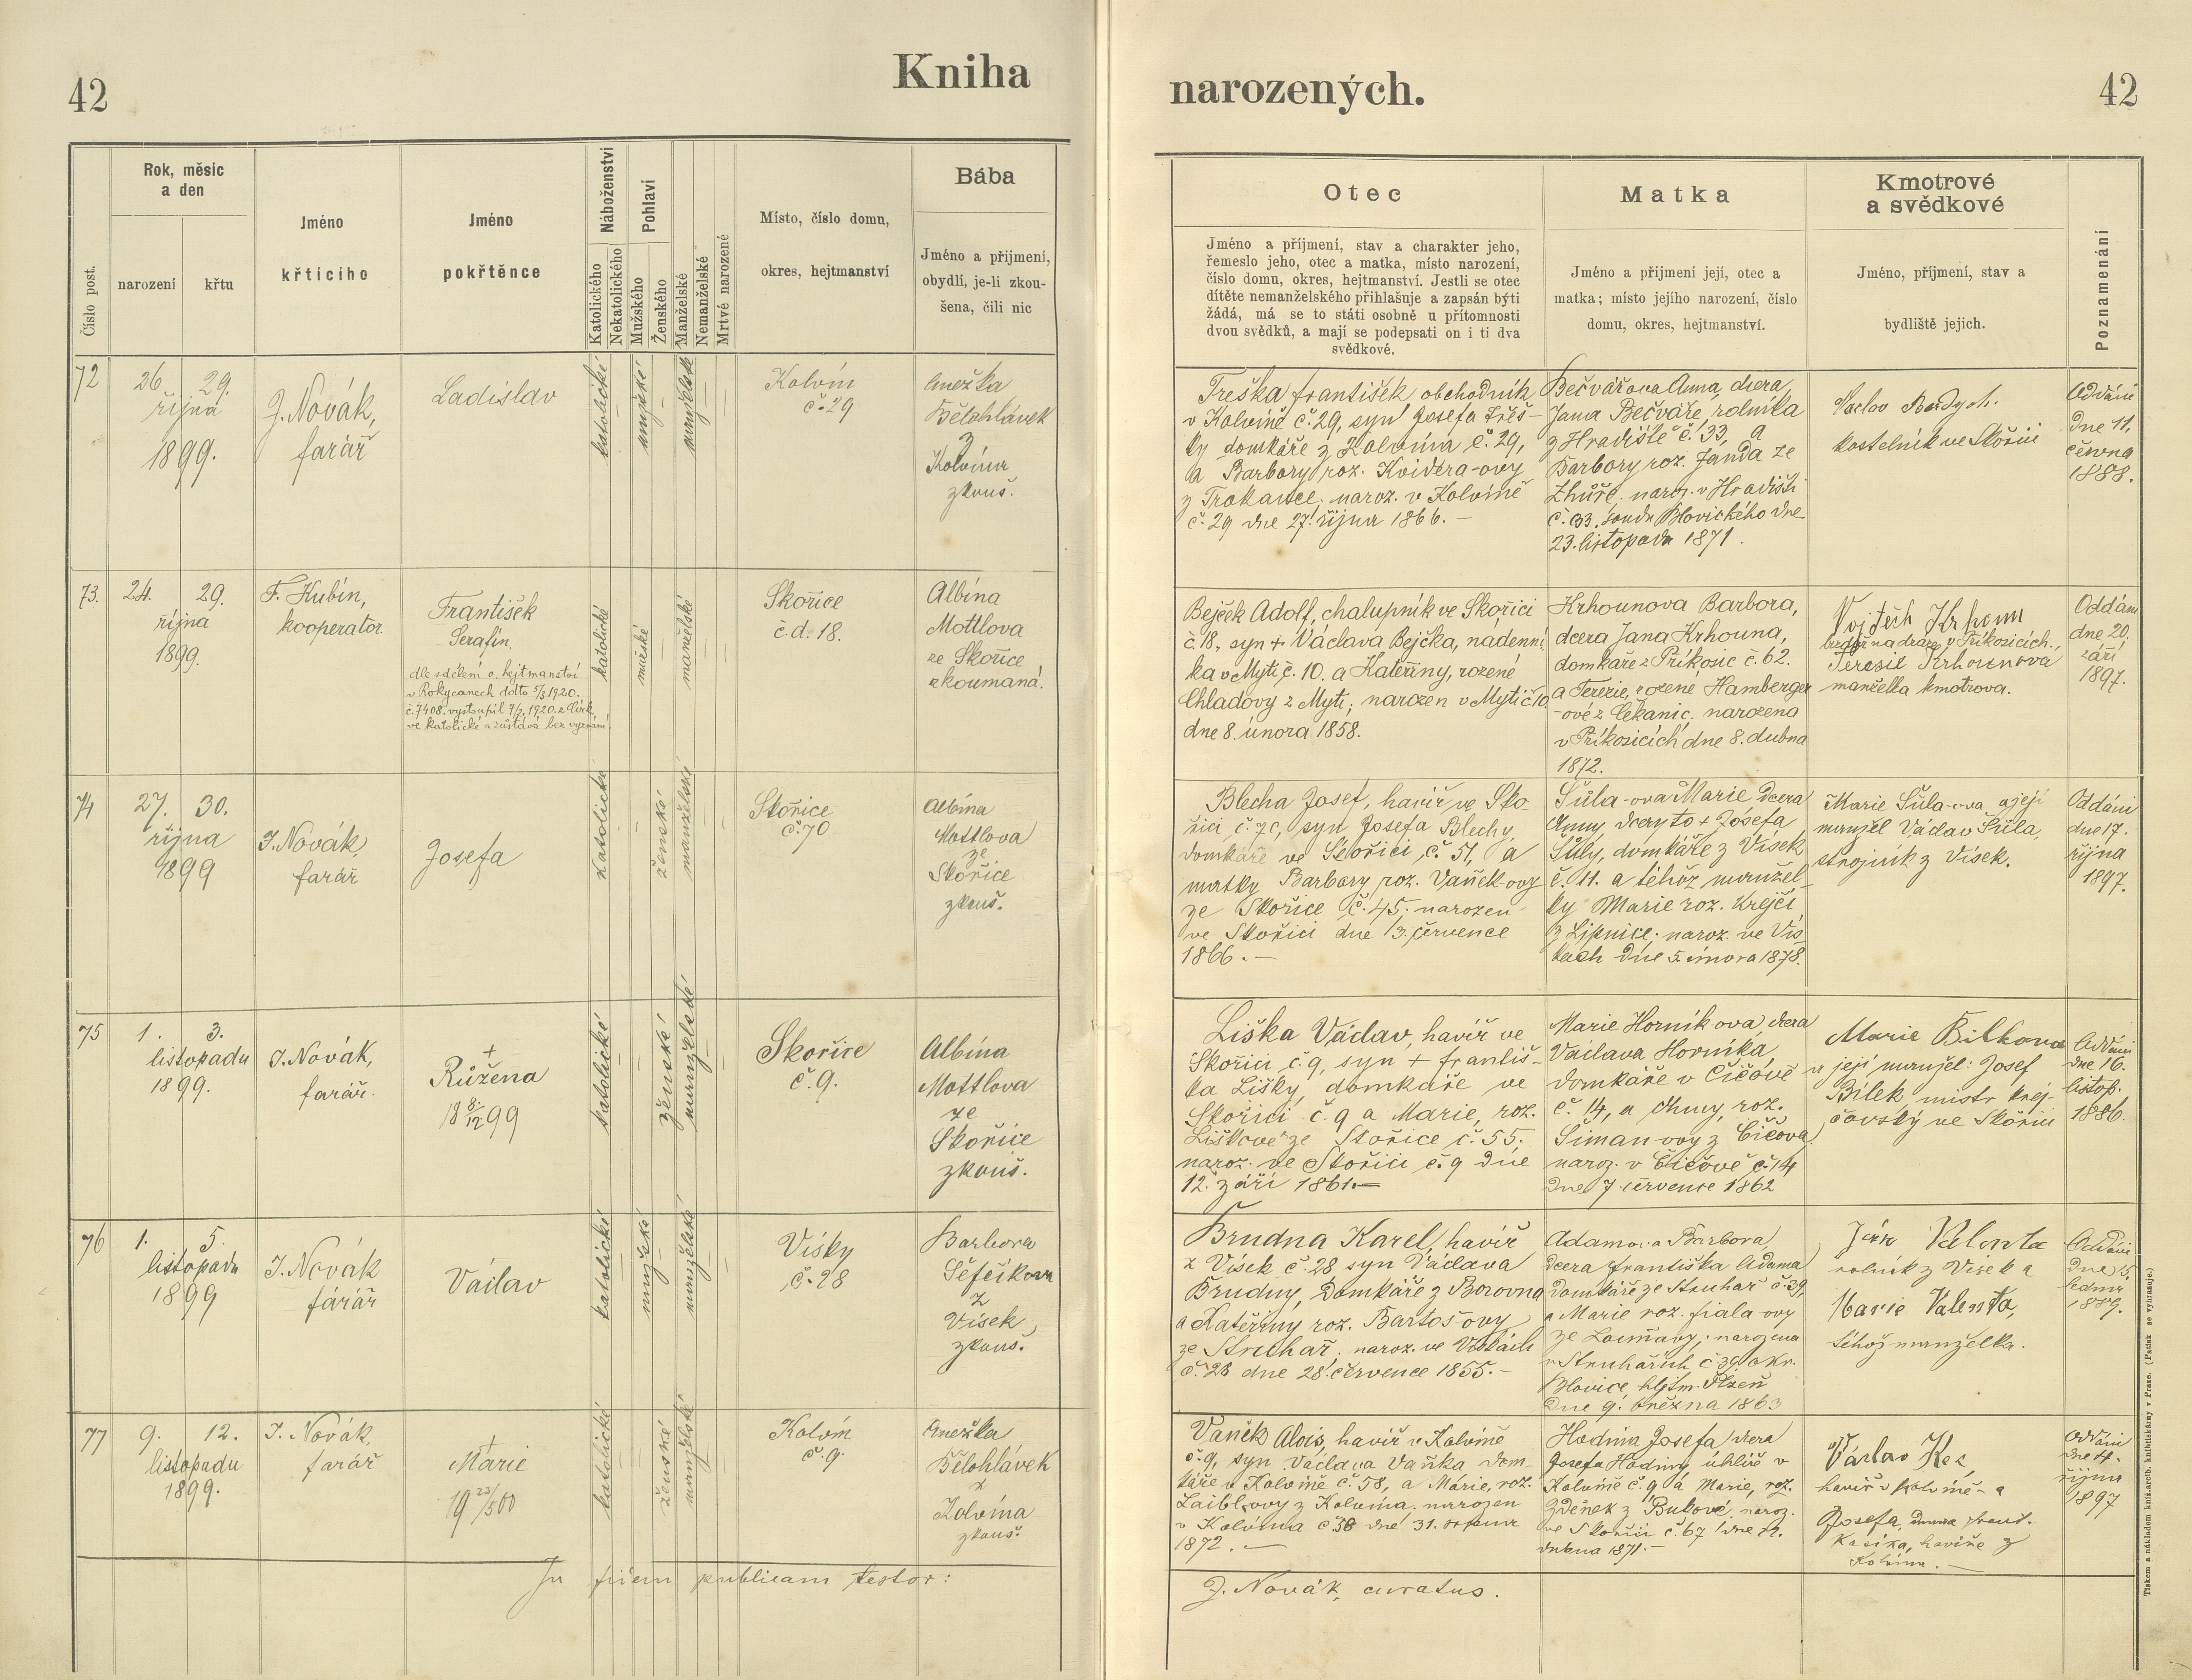 42
Kniha
narozených.
42
Číslo post.
Rok, měsíc
a den
narození
křtu
Jméno
křtícího
Jméno
pokřtěnce
Náboženství
Katolického
Nekatolického
Pohlaví
Mužského
Ženského
Manželské
Nemanželské
Mrtvé narozené
Místo, číslo domu,
okres, hejtmanství
Bába
Jméno a přijmení,
obydlí, je-li zkou-
šena, čili nic
Otec
Jméno a příjmení, stav a charakter jeho,
řemeslo jeho, otec a matka, místo narození,
číslo domu, okres, hejtmanství. Jestli se otec
dítěte nemanželského přihlašuje a zapsán býti
žádá, má se to státi osobně u přítomnosti
dvou svědků, a mají se podepsati on i ti dva
svědkové.
Matka
Jméno a přijmení její, otec a
matka; místo jejího narození, číslo
domu, okres, hejtmanství.
Kmotrové
a svědkové
Jméno, příjmení, stav a
bydliště jejich.
Poznamenání
72
26. 29.
října
1899.
J. Novák,
farář
Ladislav
katolické
mužské
manželské
Kolvín
č. 29
Anežka
Bělohlávek
z
Kolvína
zkouš.
Treška František obchodník
v Kolvíně č. 29, syn Josefa Třeš-
ky domkáře z Kolvína č. 29,
a Barbory roz. Kviděra-ovy
z Trokavce. naroz. v Kolvíně
č. 29 dne 27. října 1866. —
Bečvářova Anna, dcera
Jana Bečváře, rolníka
z Hradiště č. 33, a
Barbory roz. Janda ze
Zhůře. naroz. v Hradišti
č. 33. soudu Blovického dne
23. listopadu 1871.
Václav
kostelník ve Skořici
Oddáni
dne 11.
června
1888.
73.
24. 29.
října
1899.
F. Kubín,
kooperator
František
Serafín.
dle sdělení o. hejtmanství
v Rokycanech ddto 5/3 1920.
č. 7408. vystoupil 7/2 1920. z Círk
ve katolické a zůstává bez vyznání
katolické
mužské
manželské
Skořice
č. d. 18.
Albína
Mottlova
ze Skořice
zkoumaná.
Bejček Adolf, chalupník ve Skořici
č. 18, syn + Václava Bejčka, nadenní-
ka v Mýtě č. 10. a Kateřiny, rozené
Chladovy z Mýta; narozen v Mýtě č. 10
dne 8. února 1858.
Krhounova Barbora,
dcera Jana Krhouna,
domkáře z Příkosic č. 62.
a Terezie, rozené Hamberger
-ové z Čekanic. narozena
v Příkosicích dne 8. dubna
1872.
Vojtěch Krhoun
na dráze v Příkosicích.
Teresie Krhounova
manželka kmotrova.
Oddáni
dne 20.
září
1897.
74
27. 30.
října
1899
J. Novák,
farář
Josefa
katolické
ženské
manželské
Skořice
č. 70
Albína
Mottlova
ze
Skořice
zkouš.
Blecha Josef, havíř ve Sko-
řici č. 70, syn Josefa Blechy,
domkáře ve Skořici č. 51, a
matky Barbory roz. Vaněk-ovy
ze Skořice č. 45. narozen
ve Skořici dne 3. července
1866. —
Šůla-ova Marie, dcera
Anny, dcery to + Josefa
Šůly, domkáře z Vísek
č. 11. a téhož manžel-
ky Marie roz. Krejčí
z Lipnice. naroz. ve Vís-
kách dne 5. února 1878.
Marie Šůla-ova a její
manžel Václav Šůla,
strojník z Vísek.
Oddáni
dne 17.
října
1897.
75
1. 3.
listopadu
1899.
J. Novák,
farář.
+
Růžena
18 8/12 99
katolické
ženské
manželské
Skořice
č. 9.
Albína
Mottlova
ze
Skořice
zkouš.
Liška Václav, havíř ve
Skořici č. 9, syn + Františ-
ka Lišky, domkáře ve
Skořici č. 9 a Marie, roz.
Liškové ze Skořice č. 55.
naroz. ve Skořici č. 9 dne
12. září 1861. —
Marie Horník-ova, dcera
Václava Horníka,
domkáře v Číčově
č. 14, a Anny, roz.
Šiman-ovy z Číčova
naroz. v Číčově č. 14
dne 7 července 1862
Marie Bílkova
a její manžel: Josef
Bílek mistr krej-
čovský ve Skořici
Oddáni
dne 16.
listop.
1886.
76
1. 5.
listopadu
1899
J. Novák
farář
Václav
katolické
mužské
manželské
Vísky
č. 28
Barbora
Šefčíkova
z
Vísek
zkouš.
Brudna Karel, havíř
z Vísek č. 28 syn Václava
Brudny, domkáře z Borovna
a Kateřiny roz. Bartoš-ovy
ze Struhař. naroz. ve Vískách
č. 28 dne 28. července 1855. —
Adamova Barbora
dcera Františka Adama
domkáře ze Struhař č. 39,
a Marie roz. Fiala-ovy
ze Louňavy; narozena
v Struhařích č 39 okr.
Blovice, hejtm. Plzeň
dne 9. března 1863
Jan Valenta
rolník z Vísek a
Marie Valenta,
téhož manželka.
Oddáni
dne 5.
ledna
1889.
77
9. 12.
listopadu
1899.
J. Novák,
farář
+
Marie
19 23/5 00
katolické
ženské
manželské
Kolvín
č. 9.
Anežka
Bělohlávek
z
Kolvína
zkouš.
Vaněk Alois, havíř v Kolvíně
č. 9, syn Václava Vaňka dom-
káře v Kolvíně č. 58, a Marie, roz.
Laibl-ovy z Kolvína. narozen
v Kolvína č 58 dne 31. srpna
1872. —
Hodina Josefa, dcera
Josefa Hodiny uhlíř v
Kolvíně č. 9 a Marie, roz.
Zdeněk z Bukové. naroz.
ve Skořici č. 67 dne
dubna 1871. —
Václav
havíř v Kolvíně a
Josefa,
havíře z
Kolvína. —
Oddáni
října
1897
In fidem publicam testor:
J. Novák, curatus.
Tiskem a nákladem kníž. arcib. knihtiskárny v Praze. (Patisk se vyhrazuje.)